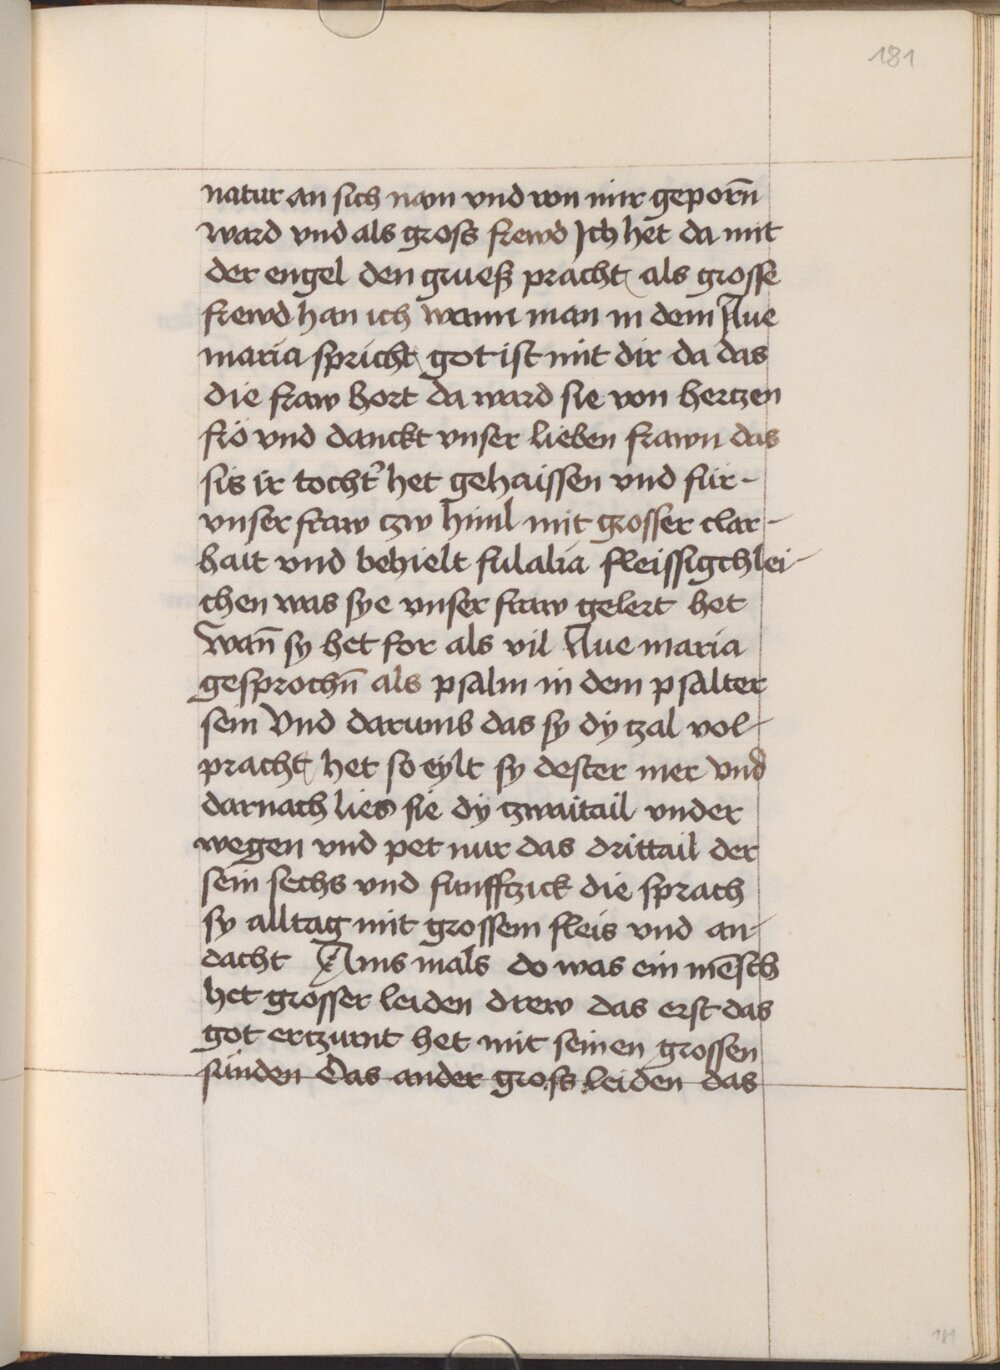 181
natur an sich nam vnd von mir geporn̄
ward vnd als gross frewd Ich het da mit
der engel den gruess pracht als grosse
frewd han ich wann man in dem Aue
maria spricht got ist mit dir da das
die fraw hort da ward sie von hertzen
fro vnd danckt vnser lieben frawn das
sis ir tocht̉ het gehaissen vnd fur-
vnser fraw tzw himl mit grosser clar-
hait vnd behielt fulalia fleissigchlei-
chen was sye vnser fraw gelert het
Wan̄ sy het for als vil Aue maria
gesprochn̄ als psalm in dem psalter
sein Vnd darumb das sy dy tzal vol-
pracht het so eylt sy dester mer vnd
darnach lies sie dy tzwaitail vnder
wegen vnd pet nur das drittail der
sein sechs vnd funfftzick die sprach
sy alltag mit grossem fleis vnd an-
dacht Ains mals do was ein mēsch
het grosser leiden drew das erst das
got ertzurnt het mit seinen grossen
sünden Das ander gross leiden das
181